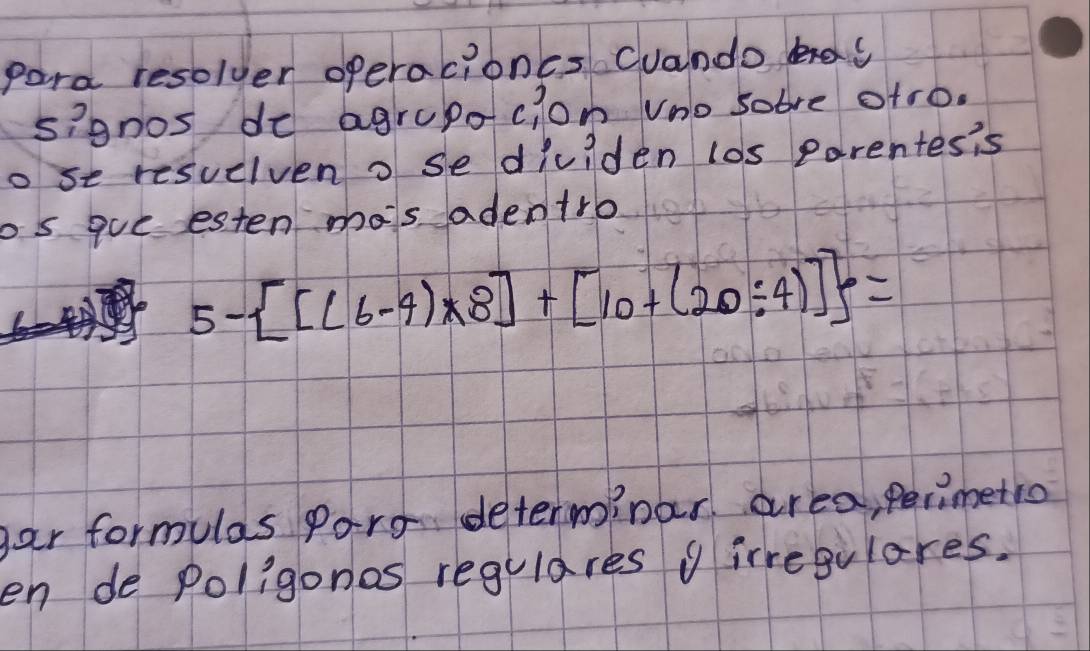 para resolver operaciones cuando hay
signos de agrupacion uno sobre otro.
o se resuelven o se dividen los parentesis
os que esten mas adentro
5-{[(6-4)×8]+[10+(20÷4)]}=
gar formulas para determinar area, perimetro
en de poligonos regulares y irregulares.